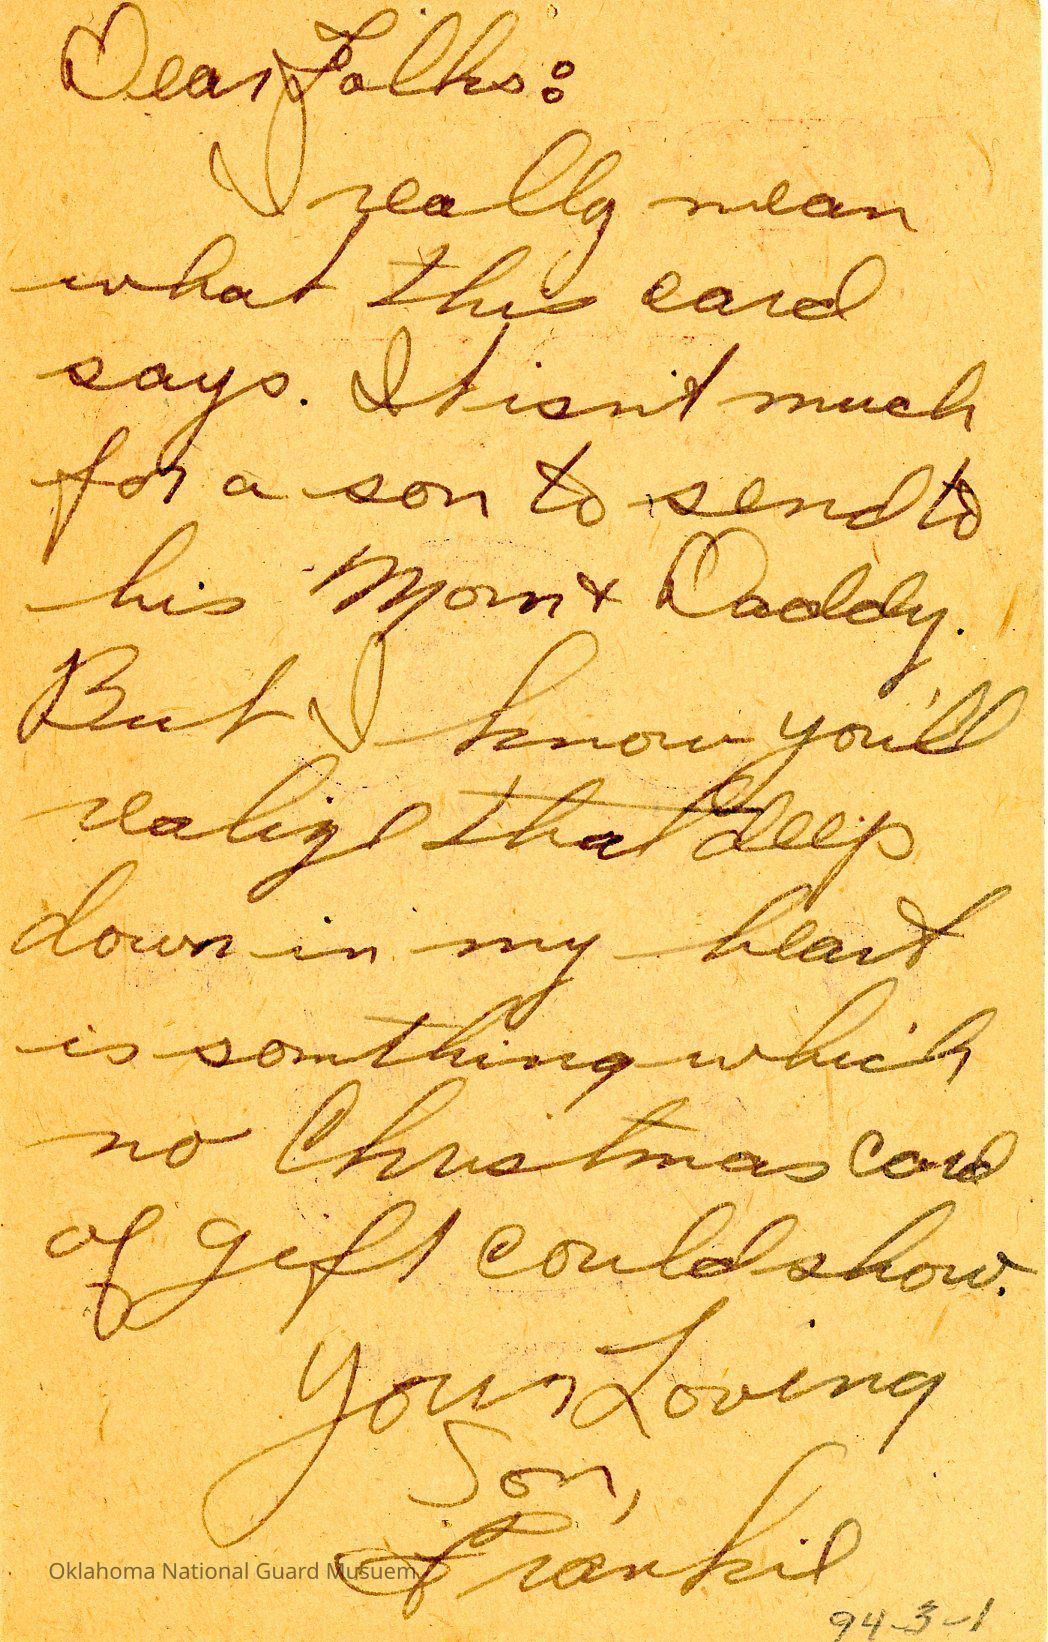 Dear Folks:
I really mean
what this card
says. It isn't much
for a son to send to
his Mom & Daddy.
But I know you'll
realize that deep
down in my heart
is somthing which
no Christmas card
of gift could show.
Your Loving
Son,
Frankie
Oklahoma National Guard Musuem
94-3-1